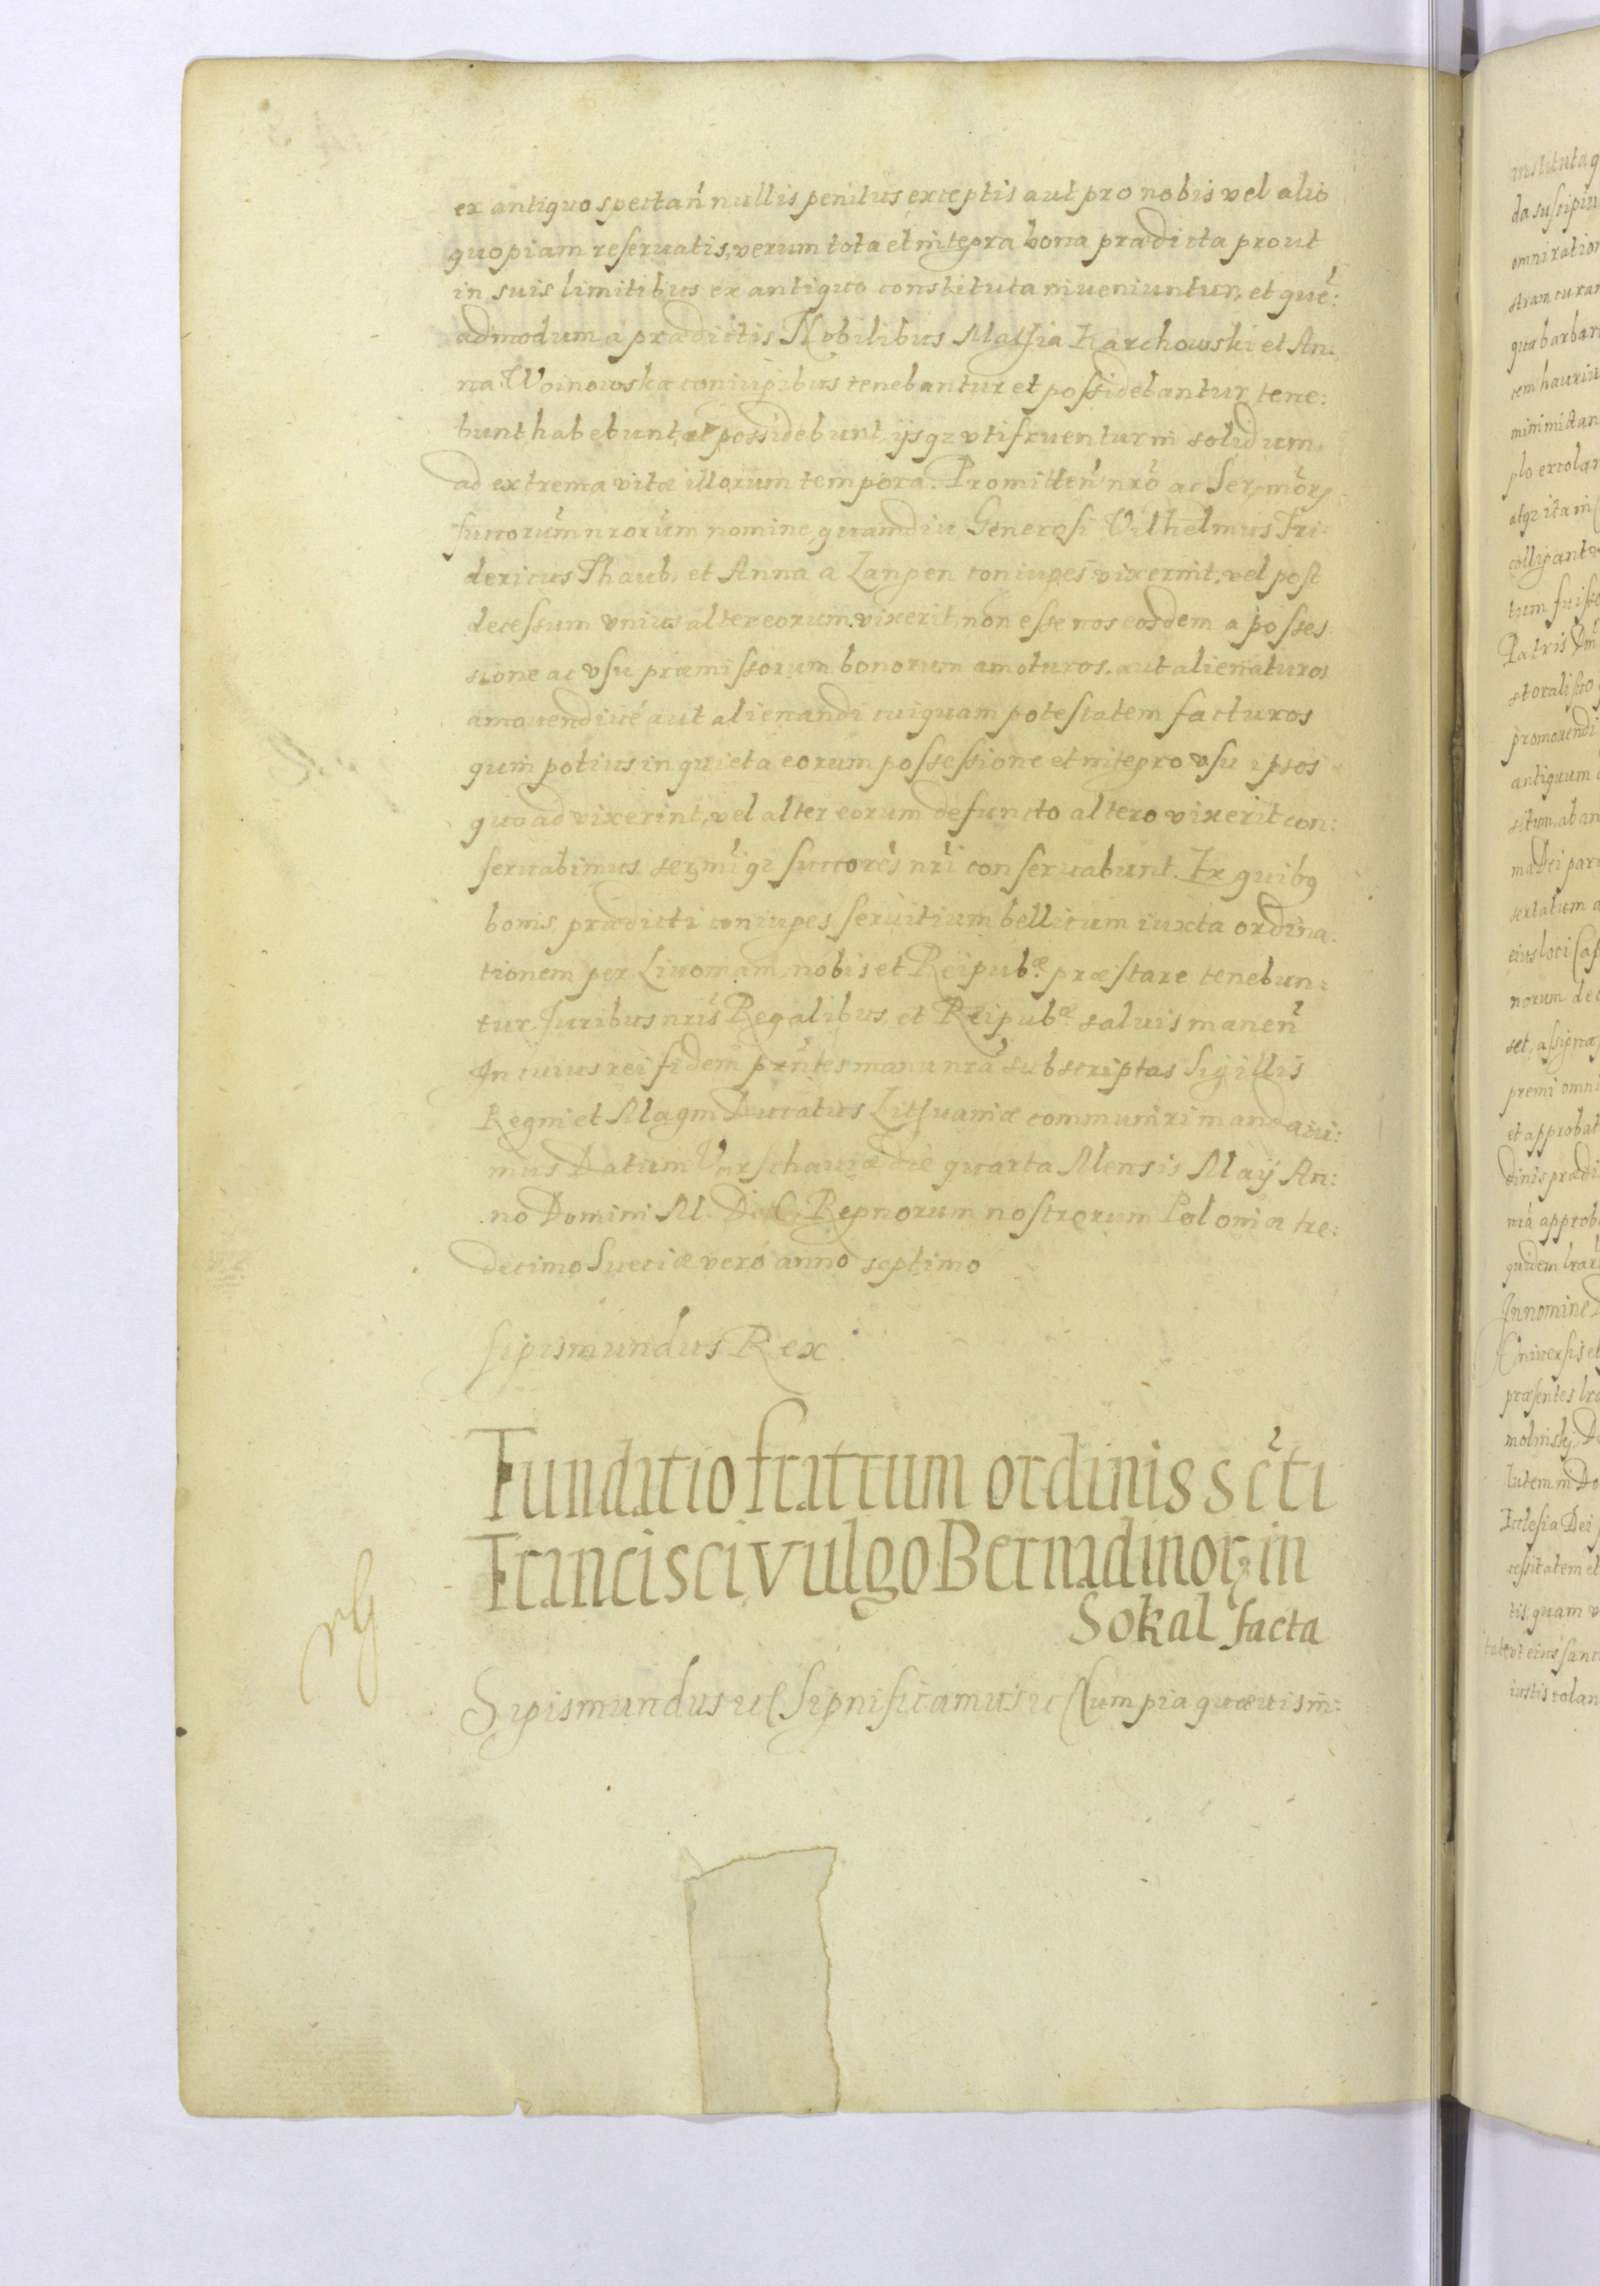 ex antiquo spectan̄ nullis penitus exceptis aut pro nobis vel alio
quopiam reseruatis, verum tota et integra bona prædicta prout
in suis limitibus ex antiquo constituta inueniuntur, et quē:
admodum a prædictis Nobilibus Mathia Karchowski et An:
na Woinowska coniugibus tenebantur et possidebantur, tene:
bunt habebunt, et possidebunt, ijsqz vtifruentur in solidum
ad extrema vitæ illorum tempora. Promitten̄ nr̄o ac Ser, mōrꝝ
succorum̄ nrorum̄ nomine, quamdiu Generosi Vilhelmus Fri
dericus Thaub, et Anna a Langen coniuges vixerint, vel post
decessum vnius alter eorum vixerit, non esse nos eosdem a posses
sione ac vsu præmissorum bonorum amoturos, aut alienaturos
amouendiue aut alienandi cuiquam potestatem facturos
quin potius in quieta eorum possessione et integro vsu ipsos
quoad vixerint, vel alter eorum defuncto altero vixerit con:
seruabimus ser, mīqz succorēs nr̄i conseruabunt. Ex quibꝯ
bonis prædicti coniuges seruitium bellicum iuxta ordina:
tionem per Liuoniam, nobis et Reipubᵆ præstare tenebun:
tur. Juribus nr̄is Regalibus, et Reipubᵆ saluis manen̄
In cuius rei fidem prn̄tes manu nrā subscriptas Sigillis
Regni et Magni Ducatus Lithuaniæ communiri mandaui:
mus Datum Varschauiæ die quarta Mensis Maij An:
no Domini M. D. C, Regnorum nostrorum Poloniæ tre:
decimo Sueciæ vero anno septimo
Sigismundus Rex
Fundatio fratrum ordinis sc̄ti
Francisci vulgo Bernadinorꝝ in
Sokal facta
Sigismundus etc Significamus etc Cum pia quæuis in: